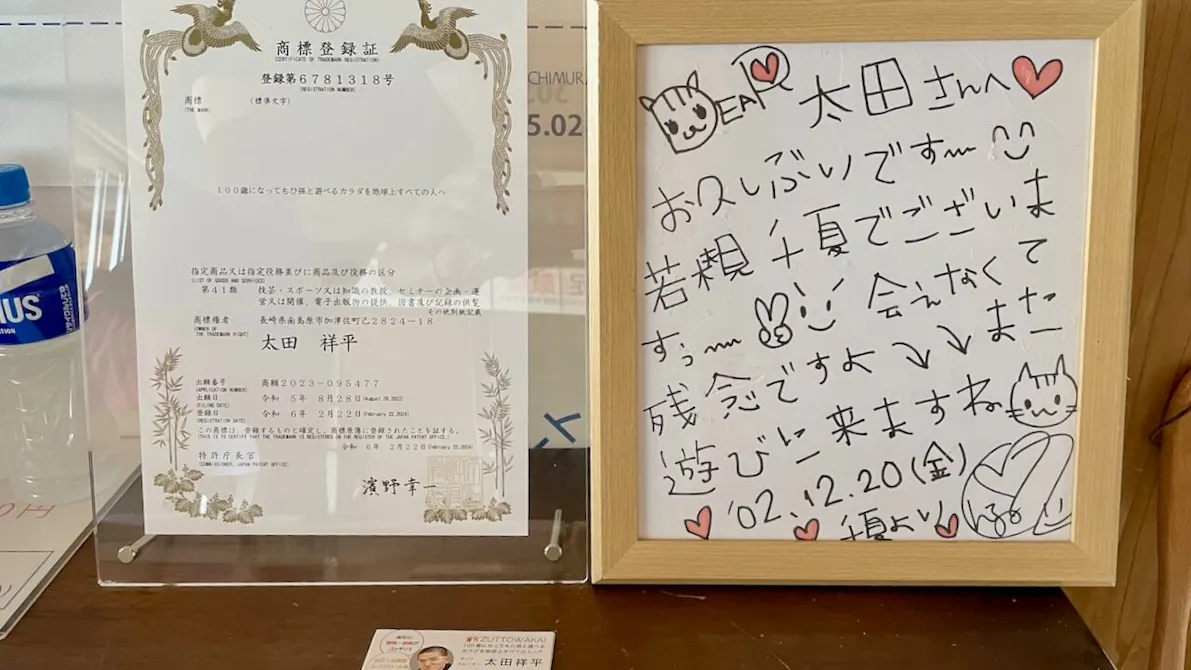 商標登録証
(CERTIFICATE OF TRADEMARK REGISTRATION)
登録第6781318号
(REGISTRATION NUMBER)
商標
(THE MARK)
(標準文字)
100歳になってもひ孫と遊べるカラダを地球上すべての人へ
指定商品又は指定役務並びに商品及び役務の区分
(LIST OF GOODS AND SERVICES)
第41類 技芸・スポーツ又は知識の教授,セミナーの企画・運
営又は開催,電子出版物の提供,図書及び記録の供覧
その他別紙記載
商標権者 長崎県南島原市加津佐町己2824-18
(OWNER OF THE TRADEMARK RIGHT)
太田 祥平
出願番号 商願2023-095477
(APPLICATION NUMBER)
出願日 令和 5年 8月28日(August 28,2023)
(FILING DATE)
登録日 令和 6年 2月22日(February 22,2024)
(REGISTRATION DATE)
この商標は,登録するものと確定し,商標原簿に登録されたことを証する。
(THIS IS TO CERTIFY THAT THE TRADEMARK IS REGISTERED ON THE REGISTER OF THE JAPAN PATENT OFFICE.)
令和 6年 2月22日(February 22,2024)
特許庁長官
(COMMISSIONER, JAPAN PATENT OFFICE)
濱野幸一
CHIMURA
5.02
DEAR 太田さんへ
お久しぶりです〜
若槻千夏でございま
すっ〜 会えなくて
残念ですよ↘↘また
遊びに来ますね
'02.12.20(金)
千夏より
ZUTTOWAKAI
100歳になってもひ孫と遊べる
カラダを地球上すべての人へ
太田祥平